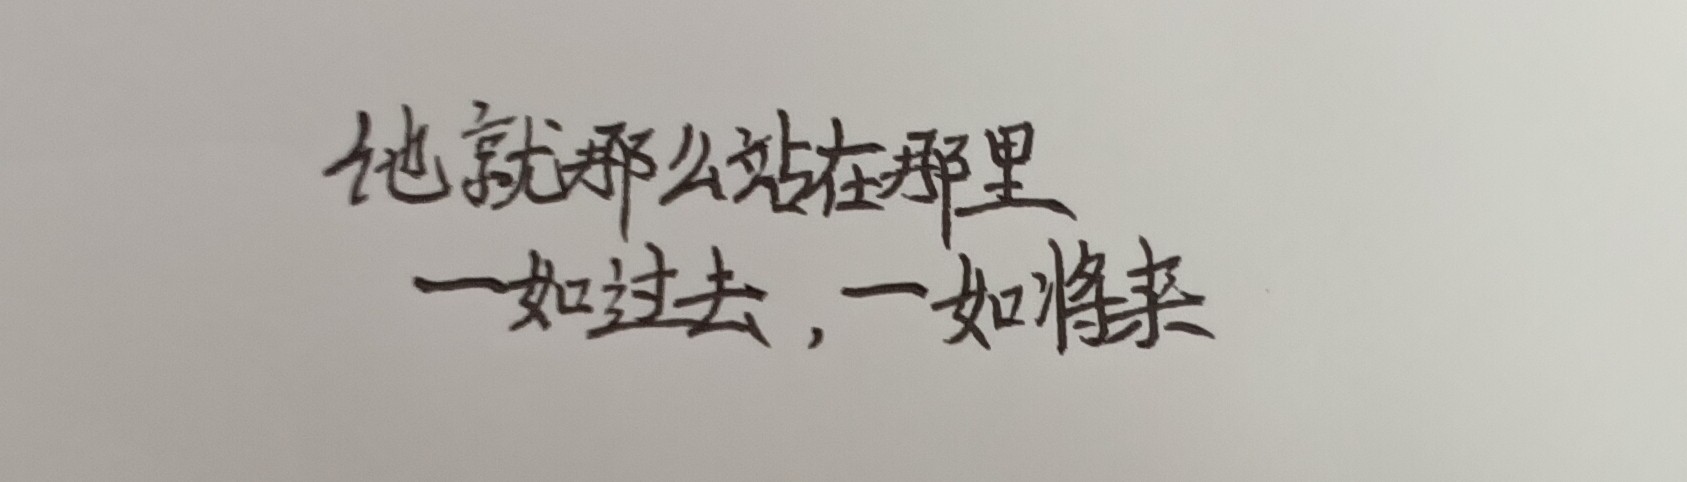 他就那么站在那里
一如过去，一如将来